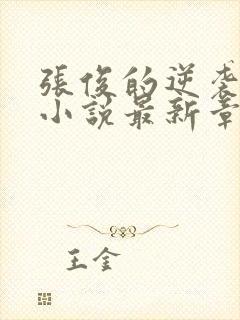 張俊的逆袭
小說最新章
王金